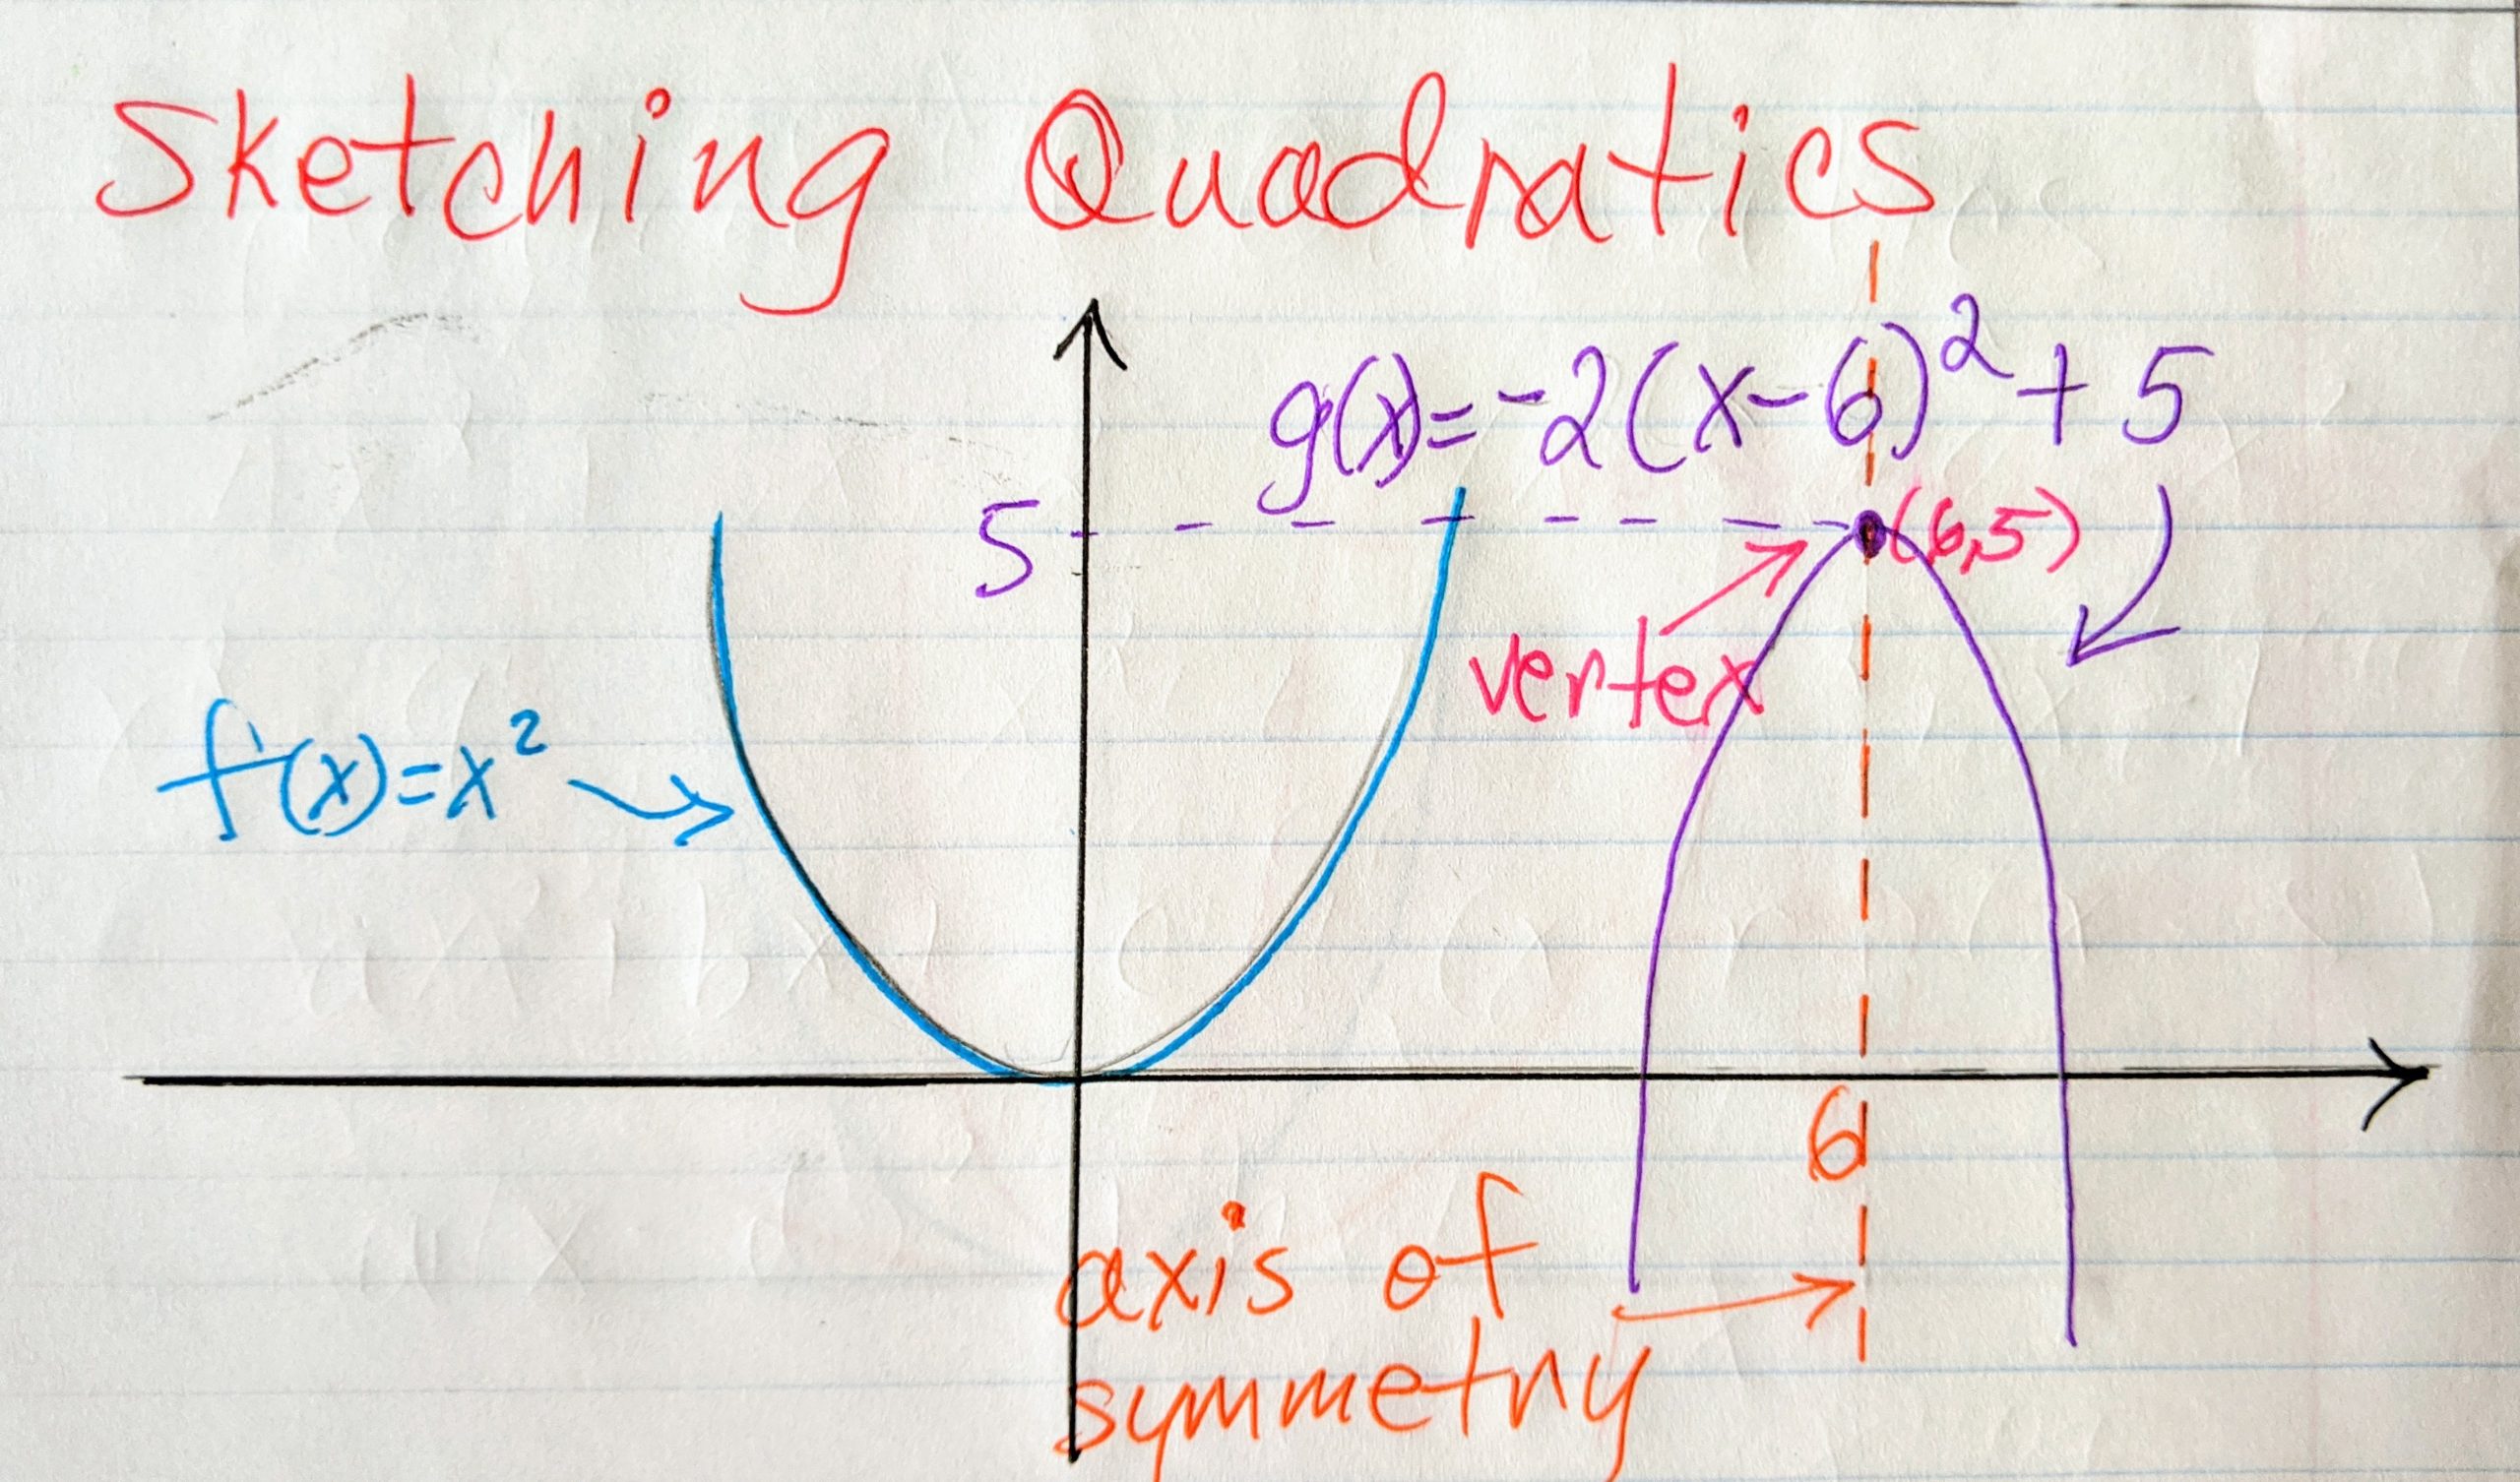 Sketching Quadratics
g(x)=-2(x-6)²+5
5
(6,5)
vertex
f(x)=x²
6
axis of
symmetry